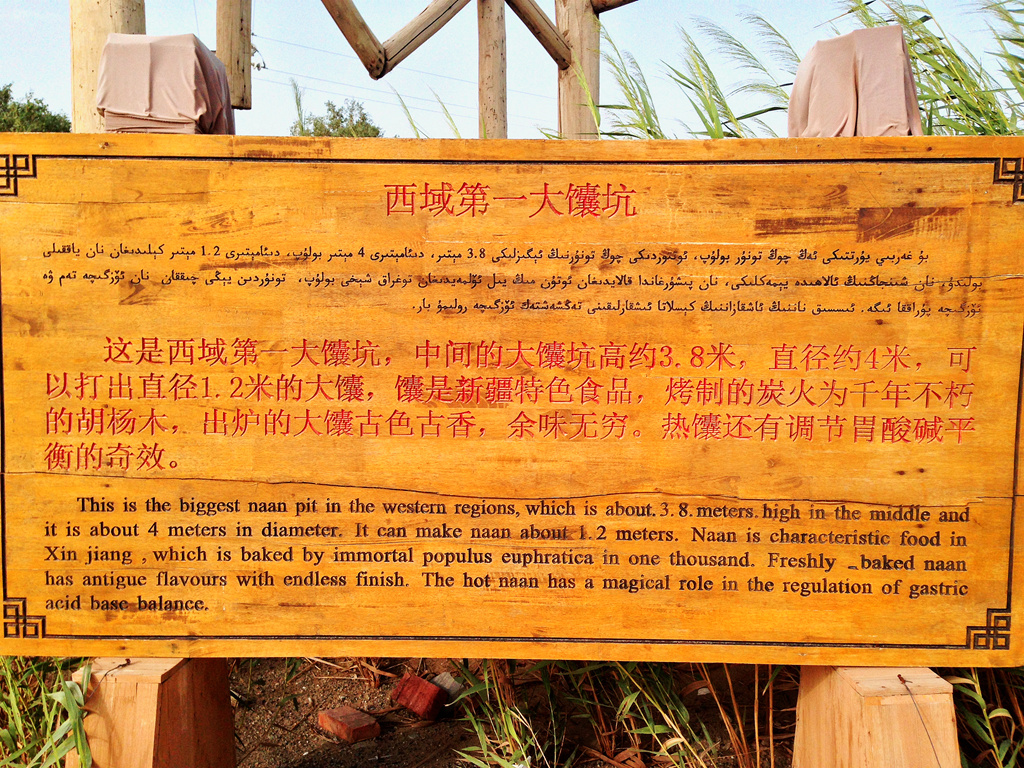 西域第一大馕坑
بۇ غەربىي يۇرتتىكى ئەڭ چوڭ تونۇر بولۇپ، ئوتتوردىكى چوڭ تونۇرنىڭ ئېگىزلىكى 3.8 مېتىر، دىئامېتىرى 4 مېتىر بولۇپ، دىئامېتىرى 1.2 مېتىر كېلىدىغان نان ياققىلى
بولىدۇ، نان شىنجاڭنىڭ ئالاھىدە يېمەكلىكى، نان پىشۇرغاندا قالايدىغان ئوتۇن مىڭ يىل ئۆلمەيدىغان توغراق شېخى بولۇپ، تونۇردىن يېڭى چىققان نان ئۆزگىچە تەم ۋە
ئۆزگىچە پۇراققا ئىگە. ئىسسىق ناننىڭ ئاشقازاننىڭ كىسلاتا ئىشقارلىقىنى تەڭشەشتەك ئۆزگىچە رولىمۇ بار.
这是西域第一大馕坑，中间的大馕坑高约3.8米，直径约4米，可
以打出直径1.2米的大馕，馕是新疆特色食品，烤制的炭火为千年不朽
的胡杨木，出炉的大馕古色古香，余味无穷。热馕还有调节胃酸碱平
衡的奇效。
This is the biggest naan pit in the western regions, which is about.3.8.meters.high in the middle and
it is about 4 meters in diameter. It can make naan about 1.2 meters. Naan is characteristic food in
Xin jiang , which is baked by immortal populus euphratica in one thousand. Freshly baked naan
has antigue flavours with endless finish. The hot naan has a magical role in the regulation of gastric
acid base balance.